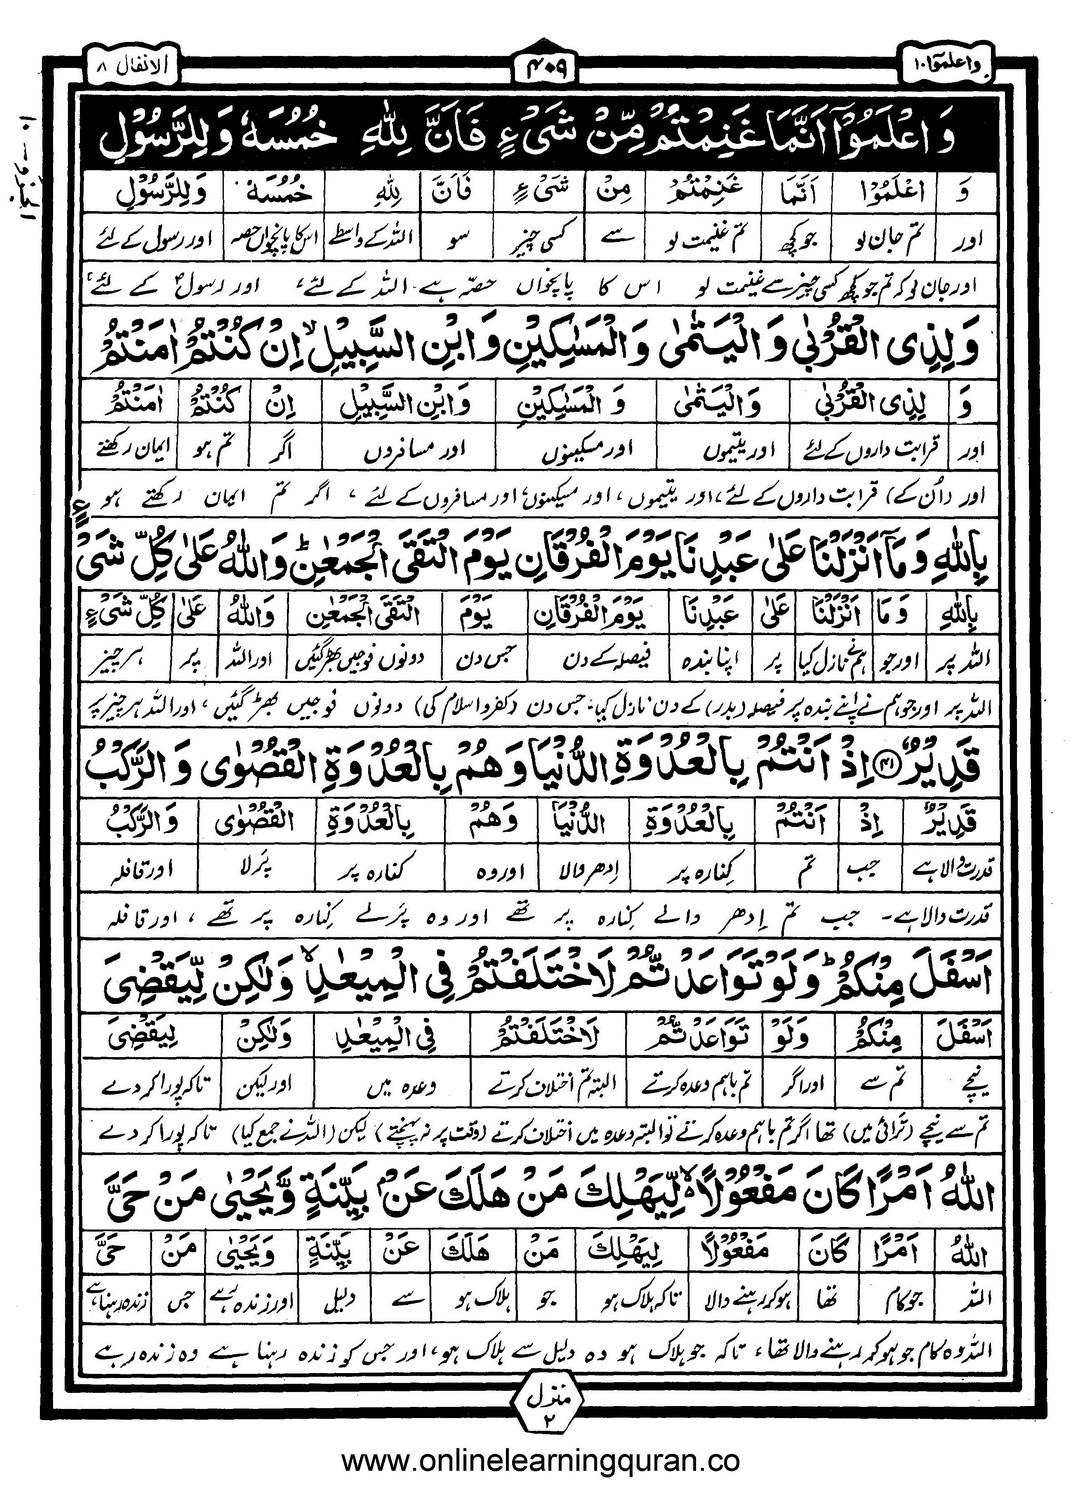 واعلموا ۱۰
۴۰۹
الانفال ۸
الجزو ۱۰
وَاعْلَمُوْٓا اَنَّمَا غَنِمْتُمْ مِّنْ شَیْءٍ فَاَنَّ لِلّٰهِ خُمُسَهٗ وَلِلرَّسُوْلِ
وَ اعْلَمُوْٓا اَنَّمَا غَنِمْتُمْ مِنْ شَیْءٍ فَاَنَّ لِلّٰهِ خُمُسَهٗ وَلِلرَّسُوْلِ
اور تم جان لو جو کچھ تم غنیمت لو سے کسی چیز سو اللہ کے واسطے اس کا پانچواں حصہ اور رسول کے لئے
اور جان لو کہ تم جو کچھ کسی چیز سے غنیمت لو اس کا پانچواں حصّہ ہے اللہ کے لئے، اور رسولؐ کے لئے،
وَلِذِی الْقُرْبٰی وَالْیَتٰمٰی وَالْمَسٰكِیْنِ وَابْنِ السَّبِیْلِ ۙ اِنْ كُنْتُمْ اٰمَنْتُمْ
وَ لِذِی الْقُرْبٰی وَالْیَتٰمٰی وَالْمَسٰكِیْنِ وَابْنِ السَّبِیْلِ اِنْ كُنْتُمْ اٰمَنْتُمْ
اور قرابت داروں کے لئے اور یتیموں اور مسکینوں اور مسافروں اگر تم ہو ایمان رکھتے
اور (ان کے) قرابت داروں کے لئے، اور یتیموں، اور مسکینوں، اور مسافروں کے لئے، اگر تم ایمان رکھتے ہو
بِاللّٰهِ وَمَآ اَنْزَلْنَا عَلٰی عَبْدِنَا یَوْمَ الْفُرْقَانِ یَوْمَ الْتَقَی الْجَمْعٰنِ ؕ وَاللّٰهُ عَلٰی كُلِّ شَیْءٍ
بِاللّٰهِ وَمَا اَنْزَلْنَا عَلٰی عَبْدِنَا یَوْمَ الْفُرْقَانِ یَوْمَ الْتَقَی الْجَمْعٰنِ وَاللّٰهُ عَلٰی كُلِّ شَیْءٍ
اللہ پر اور جو ہم نے نازل کیا پر اپنا بندہ فیصلہ کے دن جس دن دونوں فوجیں بھڑ گئیں اور اللہ پر ہر چیز
اللہ پر اور جو ہم نے اپنے بندہ پر فیصلہ (بدر) کے دن نازل کیا۔ جس دن (کفر و اسلام کی) دونوں فوجیں بھڑ گئیں، اور اللہ ہر چیز پر
قَدِیْرٌ ۴۱ اِذْ اَنْتُمْ بِالْعُدْوَةِ الدُّنْیَا وَهُمْ بِالْعُدْوَةِ الْقُصْوٰی وَالرَّكْبُ
قَدِیْرٌ اِذْ اَنْتُمْ بِالْعُدْوَةِ الدُّنْیَا وَهُمْ بِالْعُدْوَةِ الْقُصْوٰی وَالرَّكْبُ
قدرت والا ہے جب تم کنارہ پر اِدھر والا اور وہ کنارہ پر پَرلا اور قافلہ
قدرت والا ہے۔ جب تم اِدھر والے کنارہ پر تھے اور وہ پَرلے کنارہ پر تھے، اور قافلہ
اَسْفَلَ مِنْكُمْ ؕ وَلَوْ تَوَاعَدْتُّمْ لَاخْتَلَفْتُمْ فِی الْمِیْعٰدِ ۙ وَلٰكِنْ لِّیَقْضِیَ
اَسْفَلَ مِنْكُمْ وَلَوْ تَوَاعَدْتُّمْ لَاخْتَلَفْتُمْ فِی الْمِیْعٰدِ وَلٰكِنْ لِیَقْضِیَ
نیچے تم سے اور اگر تم باہم وعدہ کرتے البتہ تم اختلاف کرتے وعدہ میں اور لیکن تاکہ پورا کر دے
تم سے نیچے (ترائی میں) تھا اگر تم باہم وعدہ کرتے تو البتہ وعدہ میں اختلاف کرتے (وقت پر نہ پہنچتے) لیکن (اللہ نے جمع کیا) تاکہ پورا کر دے
اللّٰهُ اَمْرًا كَانَ مَفْعُوْلًا ۙ لِّیَهْلِكَ مَنْ هَلَكَ عَنْۢ بَیِّنَةٍ وَّیَحْیٰی مَنْ حَیَّ
اللّٰهُ اَمْرًا كَانَ مَفْعُوْلًا لِیَهْلِكَ مَنْ هَلَكَ عَنْ بَیِّنَةٍ وَیَحْیٰی مَنْ حَیَّ
اللہ جو کام تھا ہو کر رہنے والا تاکہ ہلاک ہو جو ہلاک ہو سے دلیل اور زندہ رہے جس زندہ رہنا ہے
اللہ وہ کام جو ہو کر رہنے والا تھا، تاکہ جو ہلاک ہو وہ دلیل سے ہلاک ہو، اور جس کو زندہ رہنا ہے وہ زندہ رہے
منزل ۲
www.onlinelearningquran.co